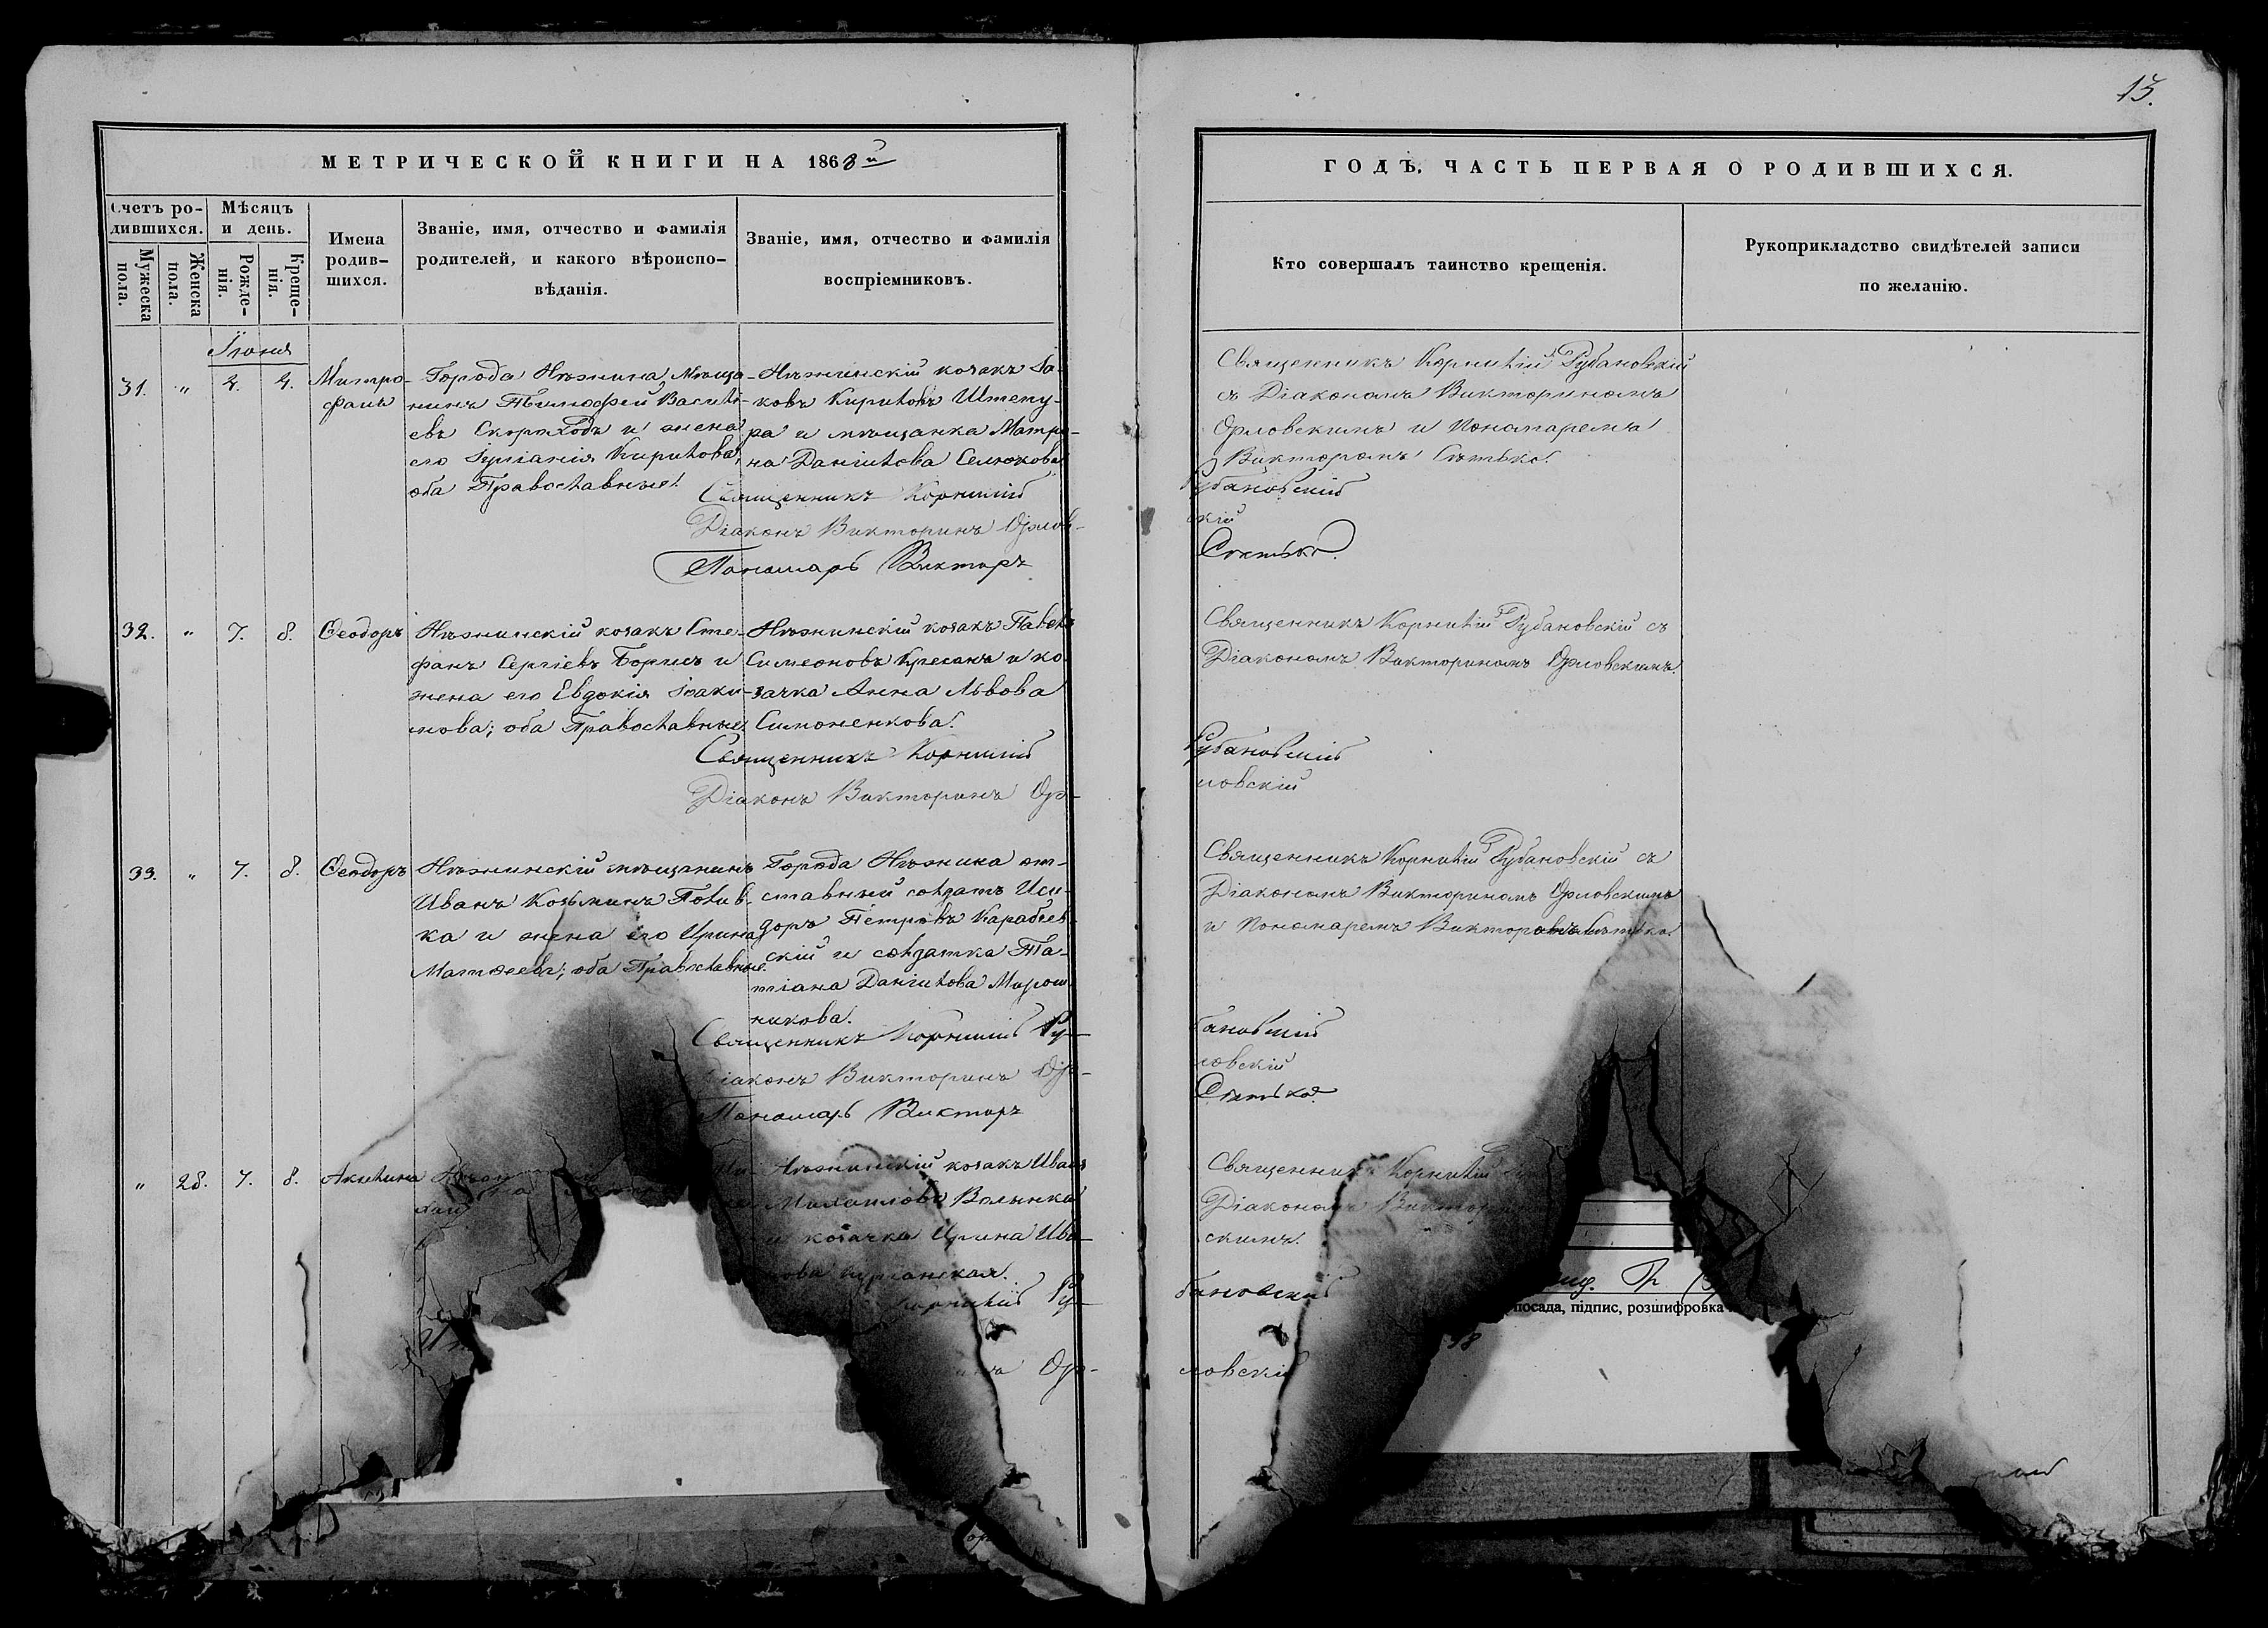 13.
МЕТРИЧЕСКОЙ КНИГИ НА 1868й
ГОДЪ, ЧАСТЬ ПЕРВАЯ О РОДИВШИХСЯ.
Счетъ ро-
дившихся.
Мужеска
пола.
Женска
пола.
Мѣсяцъ
и день.
Рожде-
нія.
Креще-
нія.
Имена
родив-
шихся.
Званіе, имя, отчество и фамилія
родителей, и какого вѣроиспо-
вѣданія.
Званіе, имя, отчество и фамилія
воспріемниковъ.
Кто совершалъ таинство крещенія.
Рукоприкладство свидѣтелей записи
по желанію.
Іюня
31. " 4. 4.
Митро-
фанъ
Города Нѣжина, мѣща-
нинъ Тимофей Василь-
евъ Скороходъ и жена
его Іуліанія Кирилова,
оба Православные.
Нѣжинскій козакъ Іа-
ковъ Кириловъ Шепу-
ра и мѣщанка Матро-
на Данилова Селюкова
Священникъ Корнилій Рубановскій
съ Діакономъ Викториномъ
Орловскимъ и Пономаремъ
Викторомъ Сѣтько.
Священникъ Корнилій Рубановскій
Діаконъ Викторинъ Орловскій
Пономарь Викторъ Сѣтько.
32. " 7. 8.
Ѳеодоръ
Нѣжинскій козакъ Сте-
фанъ Сергіевъ Борисъ и
жена его Евдокія Іоаки-
мова; оба Православные.
Нѣжинскій козакъ Павелъ
Симеоновъ Кресанъ и ко-
зачка Анна Львова
Симоненкова.
Священникъ Корнилій Рубановскій съ
Діакономъ Викториномъ Орловскимъ.
Священникъ Корнилій Рубановскій
Діаконъ Викторинъ Орловскій
33. " 7. 8.
Ѳеодоръ
Нѣжинскій мѣщанинъ
Иванъ Козьминъ Голив-
ка и жена его Ирина
Матѳеева; оба Православные.
Города Нѣжина от-
ставный солдатъ Иси-
доръ Петровъ Карабѣев-
скій и солдатка Та-
тіана Данилова Мирош-
никова.
Священникъ Корнилій Рубановскій съ
Діакономъ Викториномъ Орловскимъ
и Пономаремъ Викторомъ Сѣтько.
Священникъ Корнилій Рубановскій
Діаконъ Викторинъ Орловскій
Пономарь Викторъ Сѣтько.
" 28. 7. 8.
Акилина
Нѣжинскій козакъ Иванъ
Михайловъ Волынка
и козачка Ирина Ива-
нова
Священникъ Корнилій
Діакономъ Виктор
скимъ.
Корнилій Рубановскій
Орловскій
посада, підпис, розшифровка